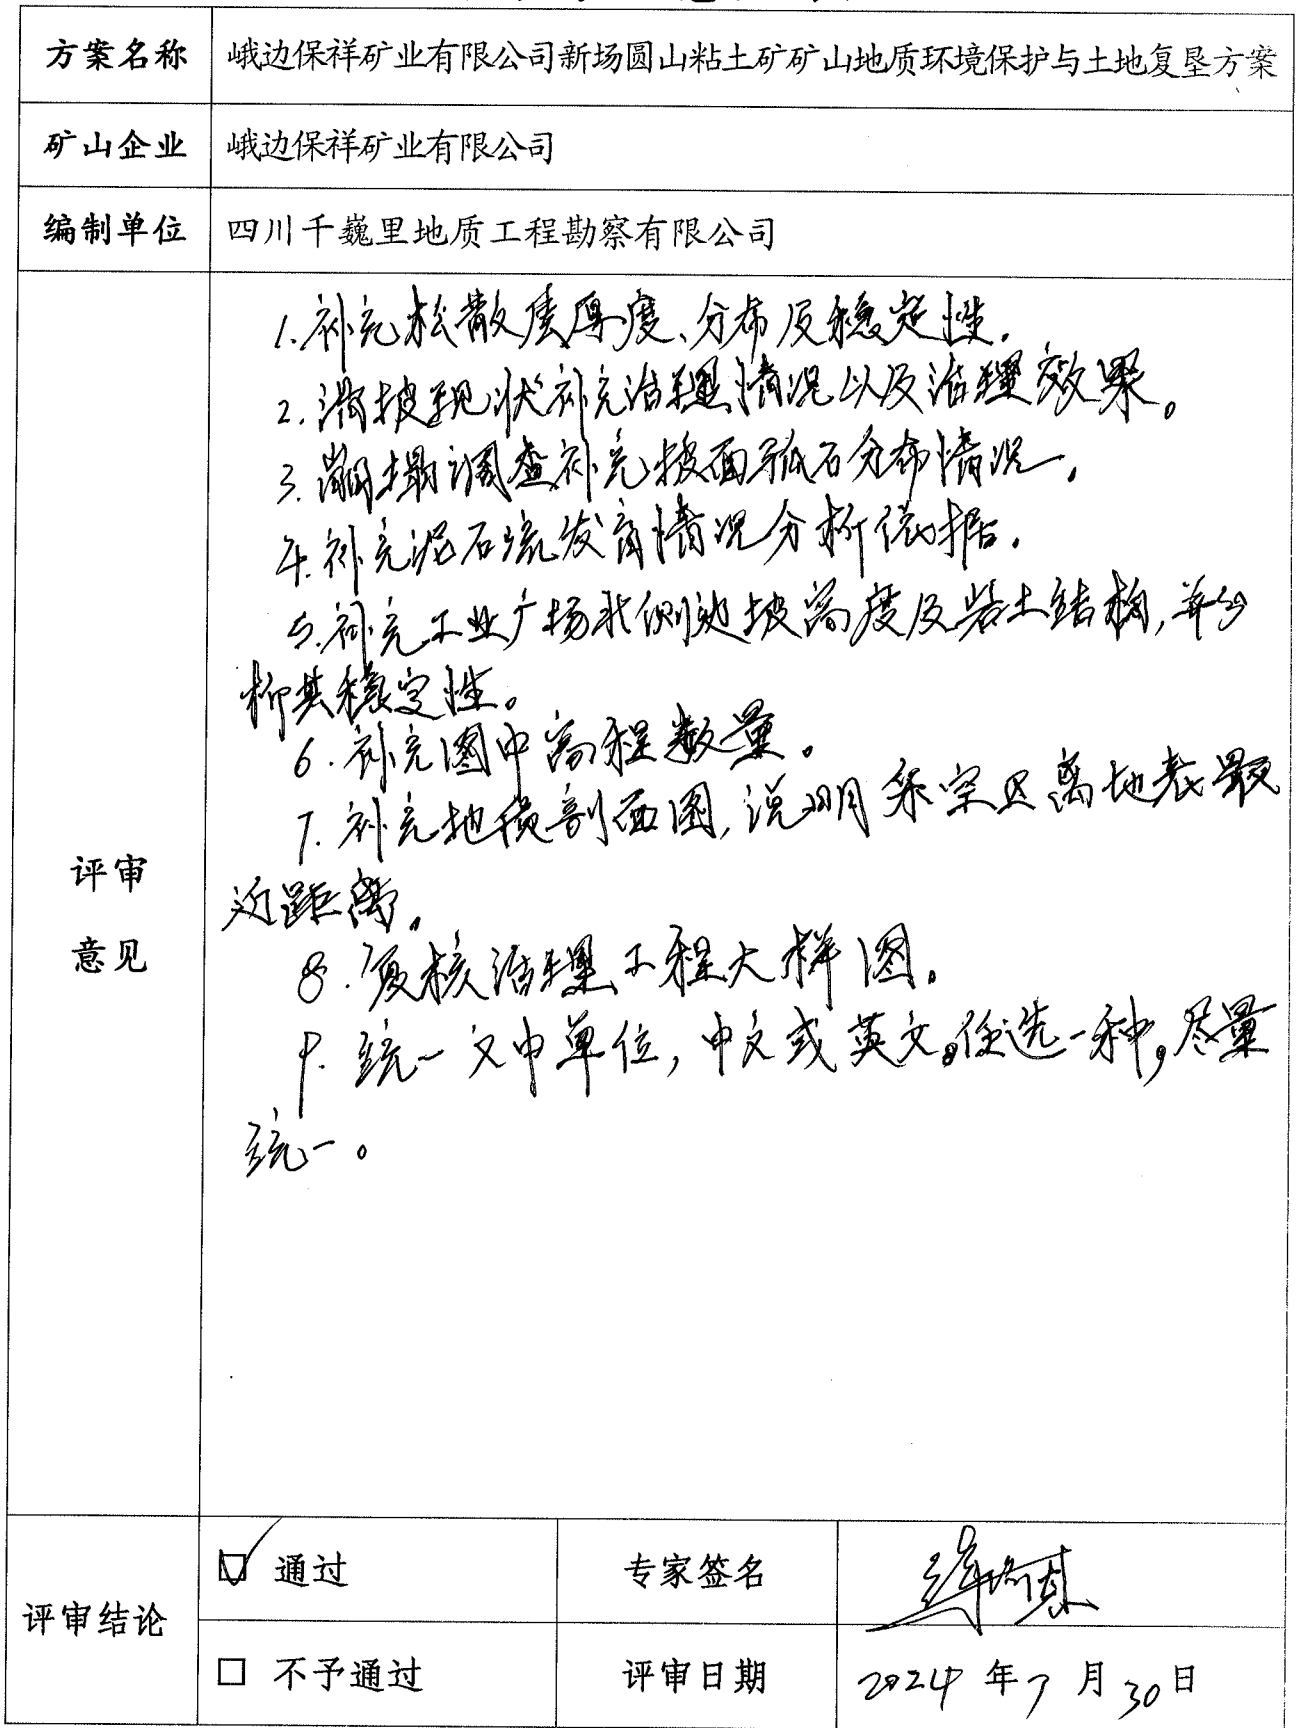 方案名称 峨边保祥矿业有限公司新场圆山粘土矿矿山地质环境保护与土地复垦方案
矿山企业 峨边保祥矿业有限公司
编制单位 四川千巍里地质工程勘察有限公司
评审
意见
1.补充松散层厚度、分布及稳定性。
2.滑坡现状补充治理情况以及治理效果。
3.崩塌调查补充坡面孤石分布情况。
4.补充泥石流发育情况分析依据。
5.补充工业广场北侧边坡高度及岩土结构,并分
析其稳定性。
6.补充图中高程数量。
7.补充地质剖面图,说明采空区离地表最
近距离。
8.复核治理工程大样图。
9.统一文中单位,中文或英文。任选一种,尽量
统一。
评审结论 ☑ 通过 专家签名
□ 不予通过 评审日期 2024年7月30日